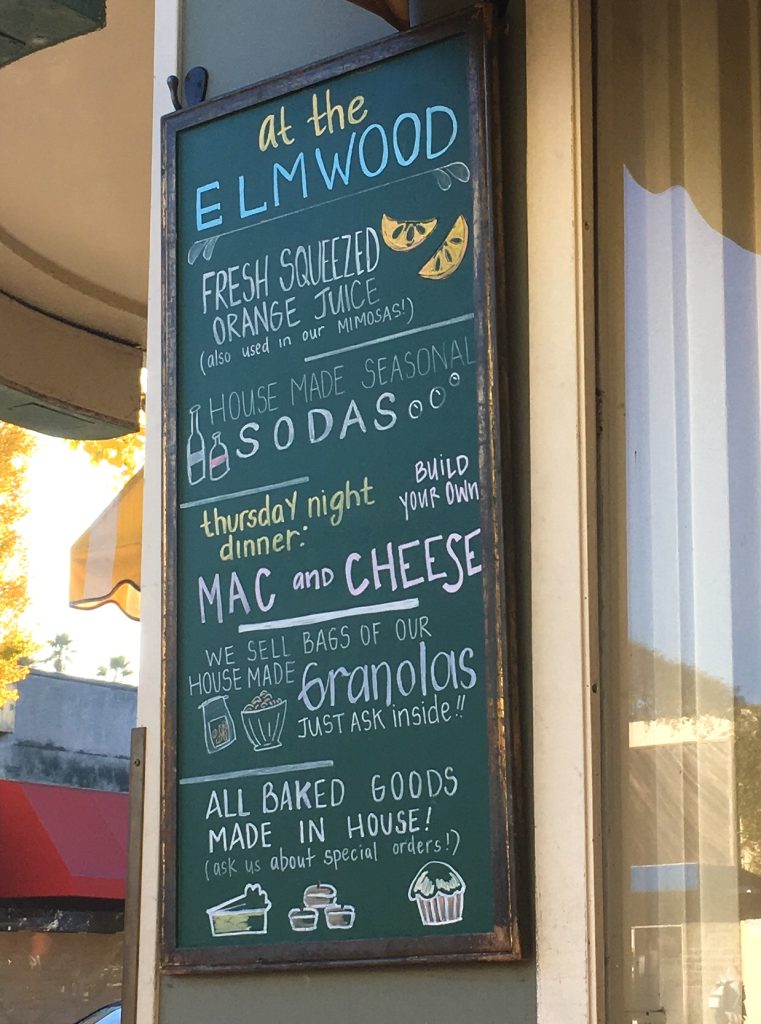 at the
ELMWOOD
FRESH SQUEEZED
ORANGE JUICE
(also used in our MIMOSAS!)
HOUSE MADE SEASONAL
SODAS
thursday night
dinner:
BUILD
YOUR OWN
MAC and CHEESE
WE SELL BAGS OF OUR
HOUSE MADE Granolas
JUST ASK inside!!
ALL BAKED GOODS
MADE IN HOUSE!
(ask us about special orders!)